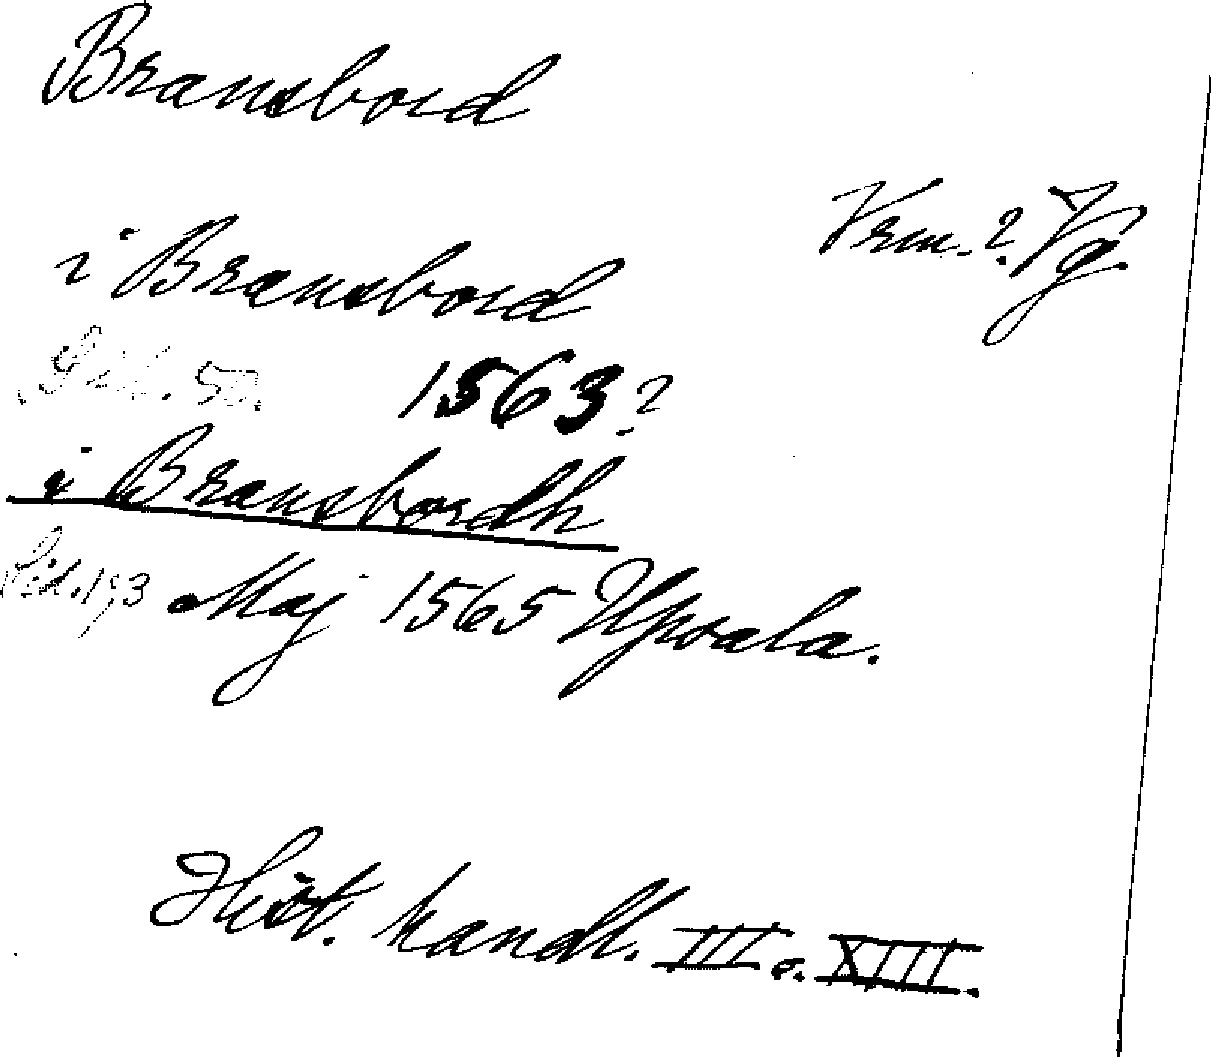 Bransbord
Vrm.? Vg.
i Bransbord
Sid. 50. 1563?
i Bransbordh
Sid. 193 Maj 1565 Upsala.
Hist. handl. III o. XIII.